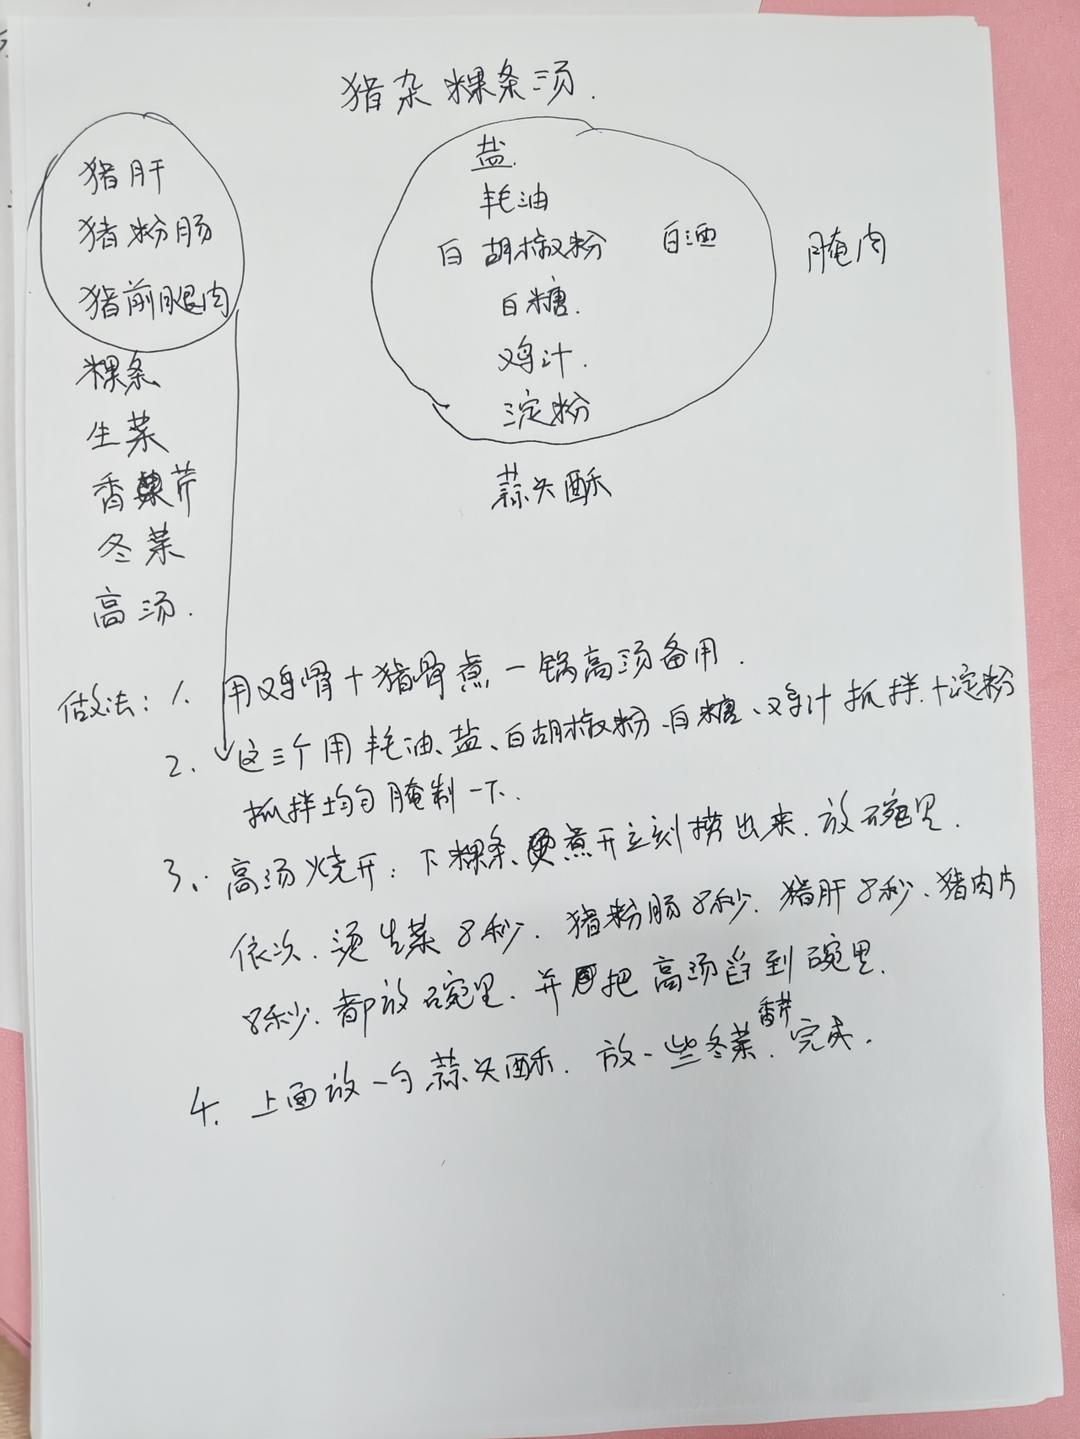 猪杂粿条汤.
猪肝
猪粉肠
猪前腿肉
粿条
生菜
香芹
冬菜
高汤.
盐.
耗油
白胡椒粉 白酒
白糖.
鸡汁.
淀粉
腌肉
蒜头酥
做法: 1. 用鸡骨+猪骨煮一锅高汤备用.
2. 这三个用耗油、盐、白胡椒粉、白糖、鸡汁抓拌.+淀粉
抓拌均匀腌制一下.
3. 高汤烧开: 下粿条、煮开立刻捞出来.放碗里.
依次.烫生菜8秒.猪粉肠8秒.猪肝8秒、猪肉片
8秒.都放碗里.并把高汤舀到碗里.
4. 上面放一勺蒜头酥.放一些冬菜.香芹 完成.